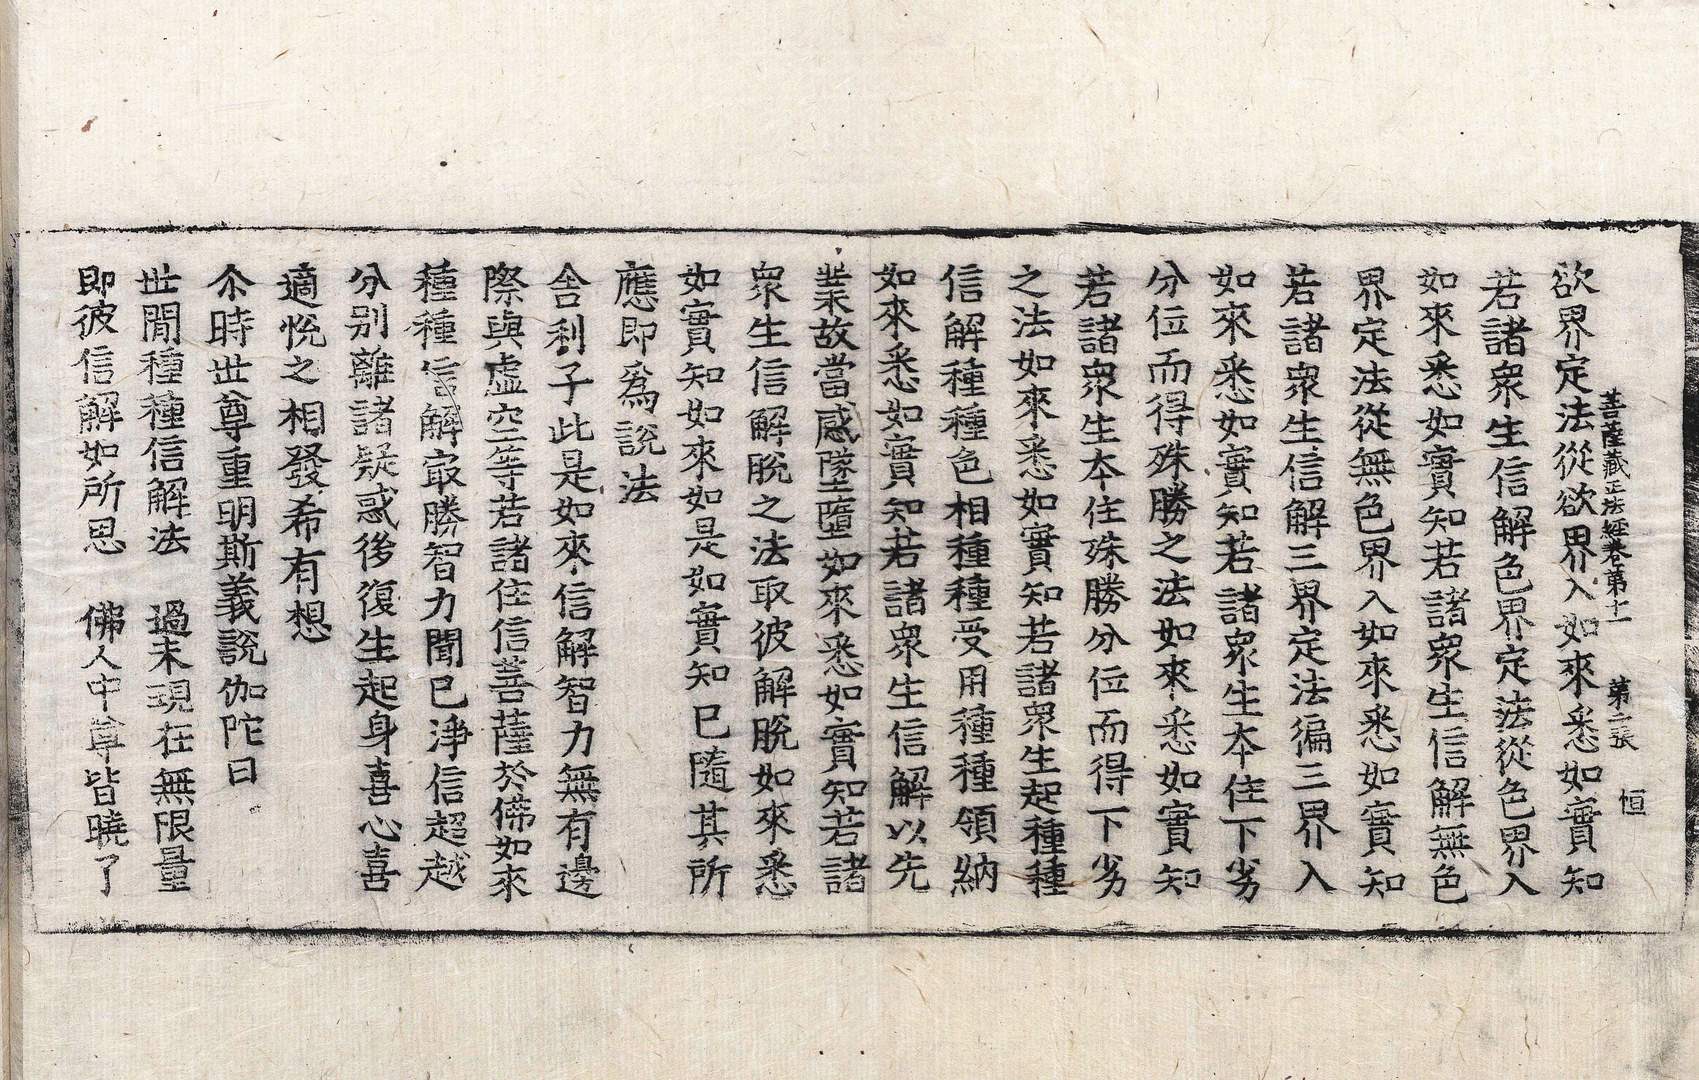 菩薩藏正法經卷第十一　第二張　恒
欲界定法從欲界入如來悉如實知
若諸衆生信解色界定法從色界入
如來悉如實知若諸衆生信解無色
界定法從無色界入如來悉如實知
若諸衆生信解三界定法徧三界入
如來悉如實知若諸衆生本住下劣
分位而得殊勝之法如來悉如實知
若諸衆生本住殊勝分位而得下劣
之法如來悉如實知若諸衆生起種種
信解種種色相種種受用種種領納
如來悉如實知若諸衆生信解以先
業故當感墜墮如來悉如實知若諸
衆生信解脫之法取彼解脫如來悉
如實知如來如是如實知已隨其所
應即爲說法
舎利子此是如來信解智力無有邊
際與虛空等若諸住信菩薩於佛如來
種種信解㝡勝智力聞已淨信超越
分别離諸疑惑後復生起身喜心喜
適悅之相發希有想
尒時世尊重明斯義說伽陀曰
世間種種信解法　過未現在無限量
即彼信解如所思　佛人中尊皆曉了